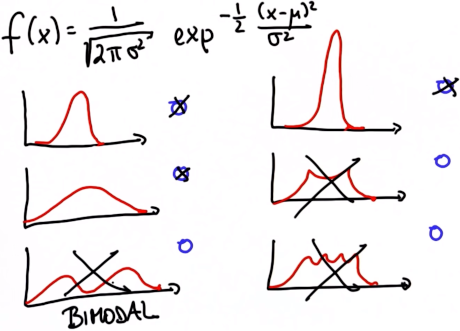 f(x) = 1/√(2πσ²) exp^(-1/2 (x-μ)²/σ²)
BIMODAL